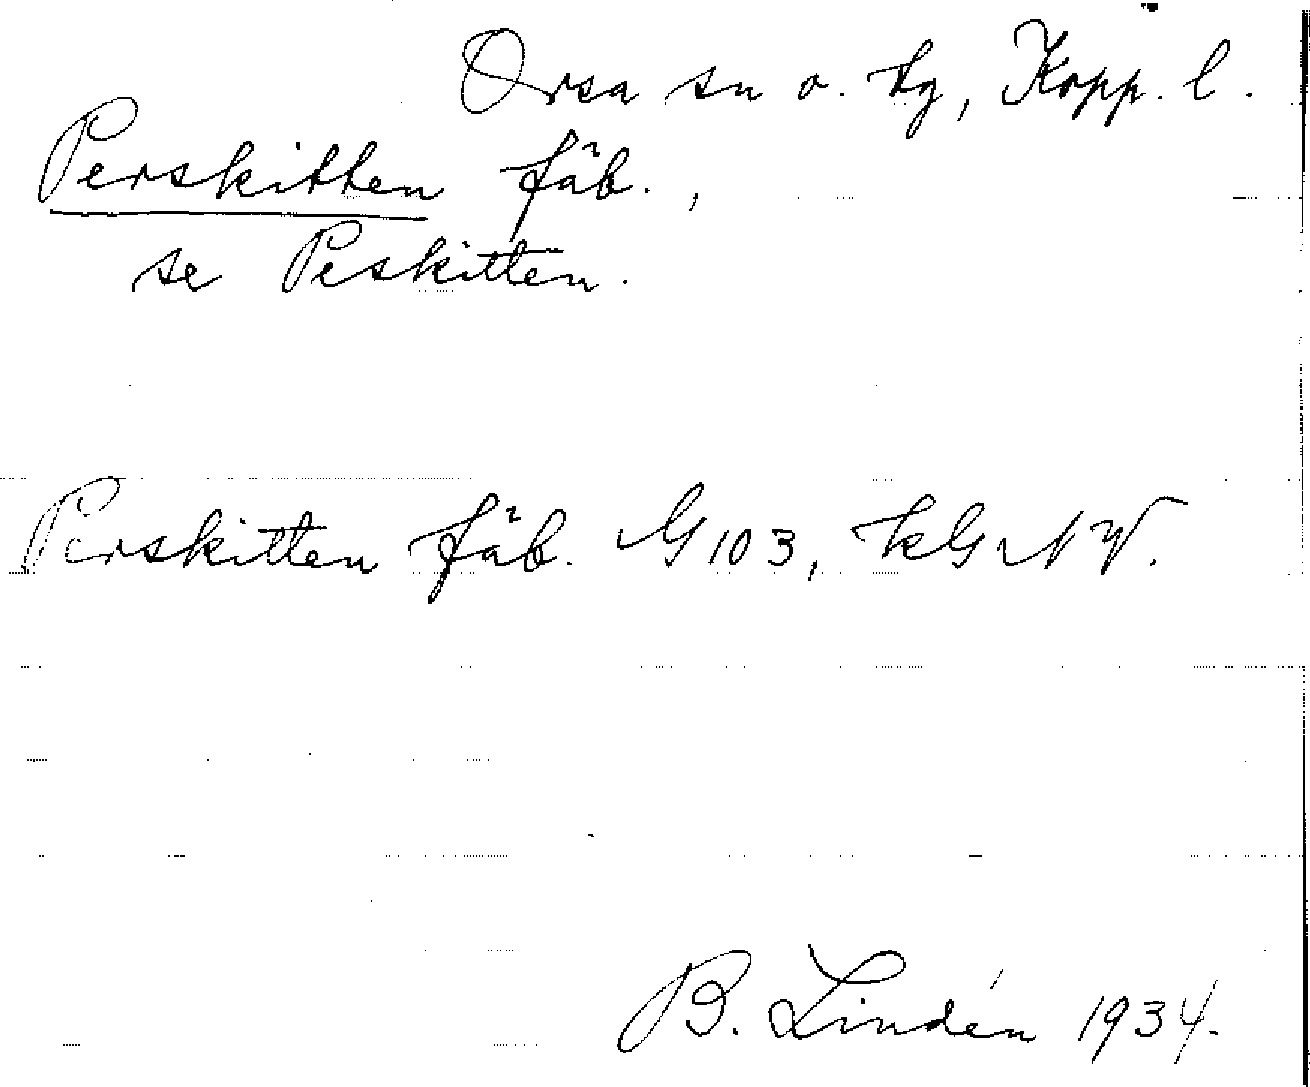 Orsa sn o. tg, Kopp. l.
Perskitten fäb.,
se Peskitten.
Perskitten fäb. G103, kG NV.
B. Lindén 1934.